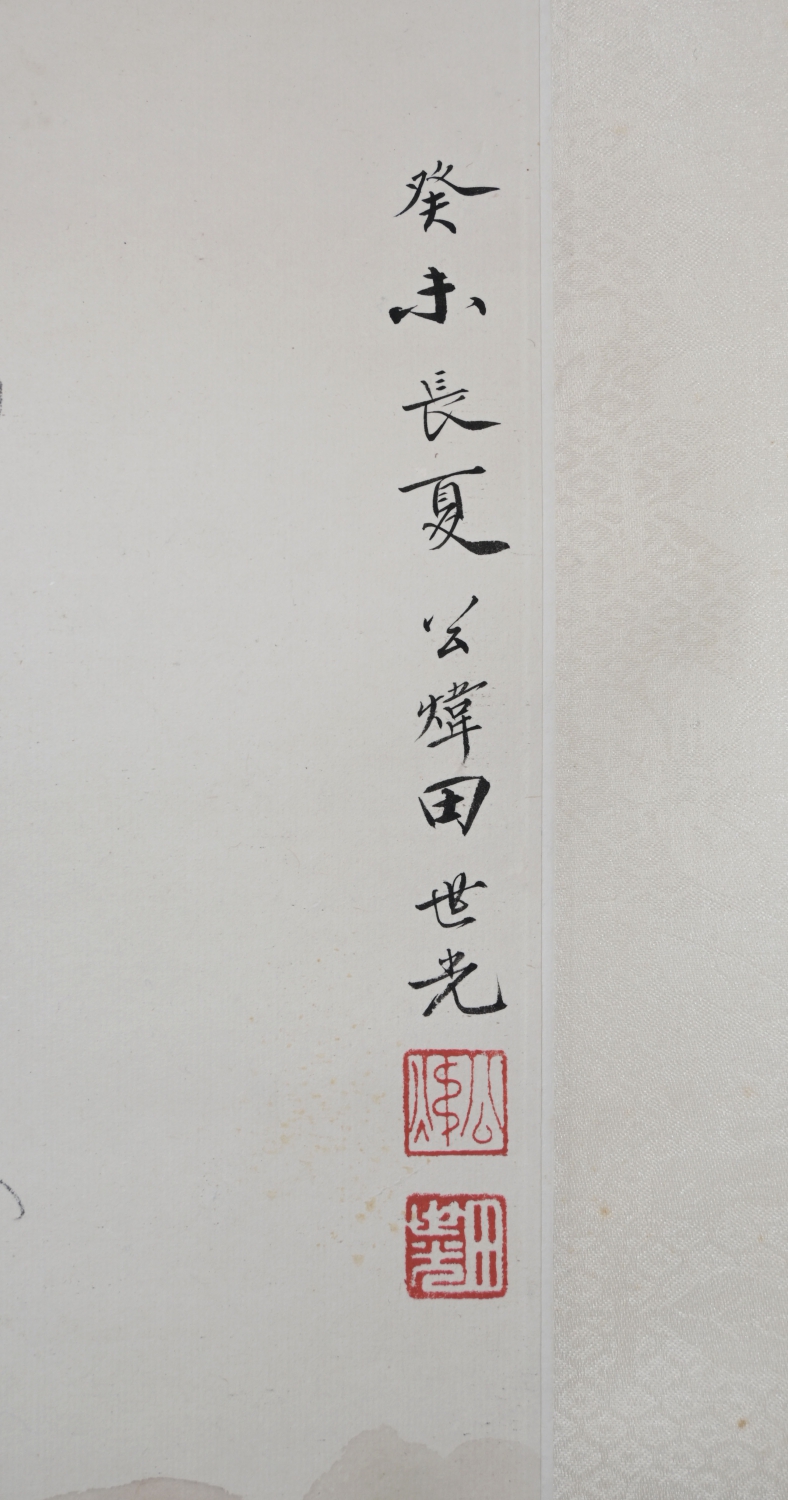 癸未長夏公煒田世光
公煒
田世光